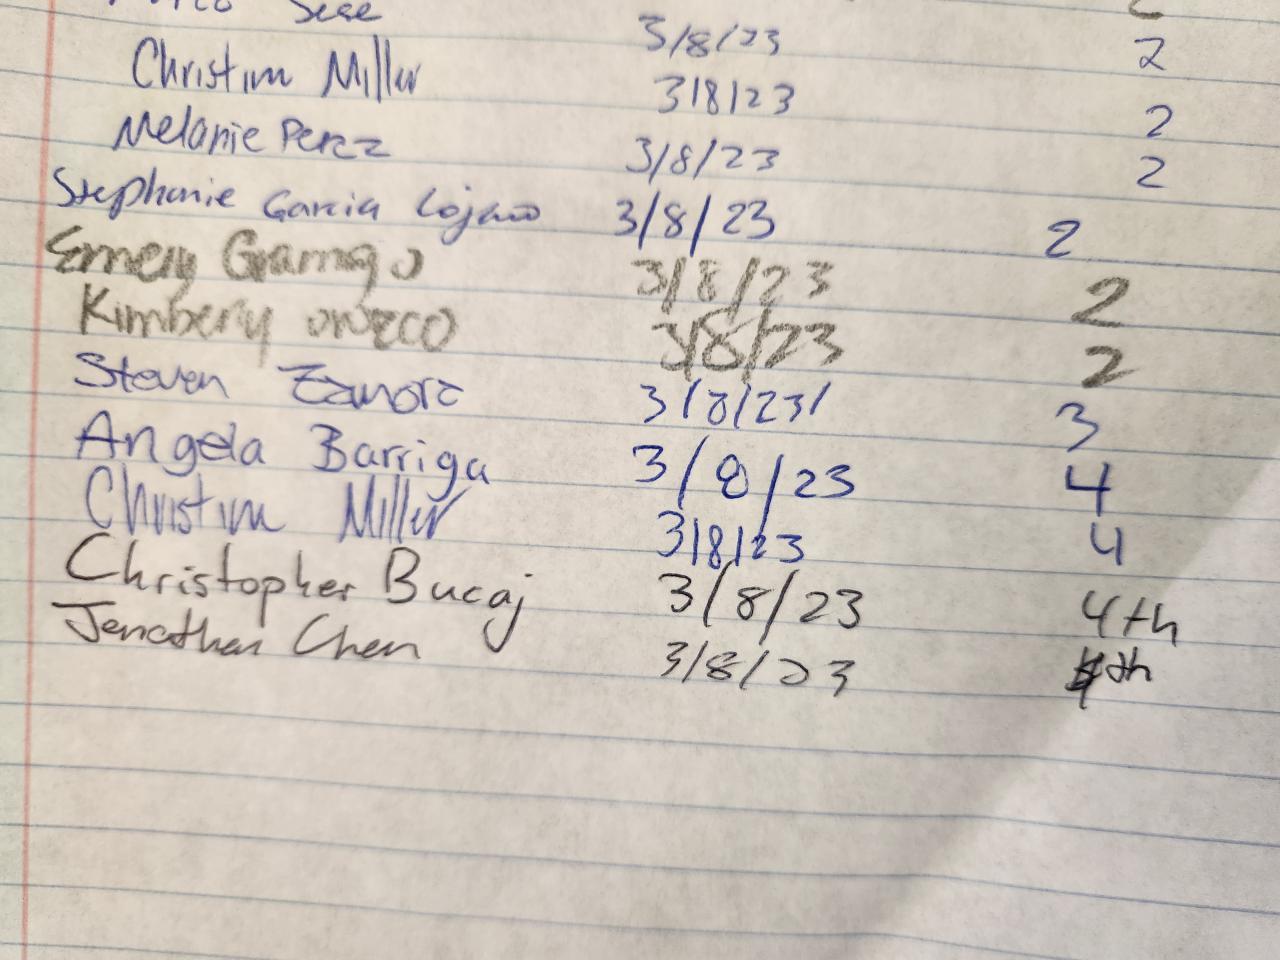 3/8/23 2
Christina Miller 3/8/23 2
Melanie Perez 3/8/23 2
Stephanie Garcia 3/8/23 2
Emery 3/8/23 2
Kimberly orozco 3/8/23 2
Steven Zamora 3/8/23/ 3
Angela Barriga 3/8/23 4
Christina Miller 3/8/23 4
Christopher Bucaj 3/8/23 4th
Jonathan Chen 3/8/23 4th